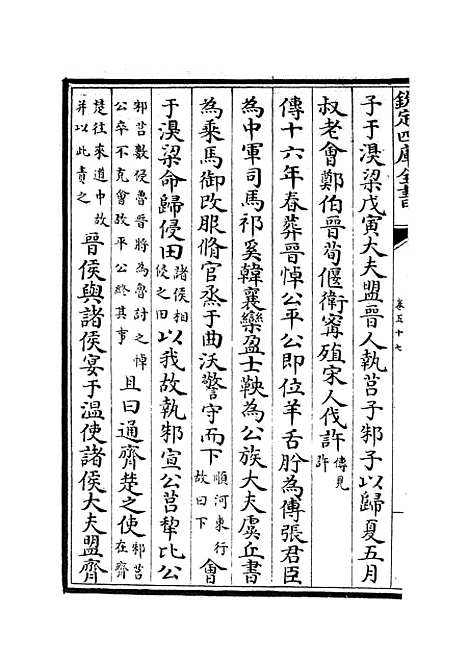 欽定四庫全書
卷五十七
子于湨梁戊寅大夫盟晉人執莒子邾子以歸夏五月
叔老會鄭伯晉荀偃衛甯殖宋人伐許傳見許
傳十六年春葬晉悼公平公即位羊舌肸為傅張君臣
為中軍司馬祁奚韓襄欒盈士鞅為公族大夫虞丘書
為乘馬御改服脩官烝于曲沃警守而下順河東行故曰下會
于湨梁命歸侵田諸侯相侵之田以我故執邾宣公莒犂比公
邾莒數侵魯晉將為魯討之悼公卒不克會故平公終其事且曰通齊楚之使邾莒在齊
楚往來道中故并以此責之晉侯與諸侯宴于溫使諸侯大夫盟齊